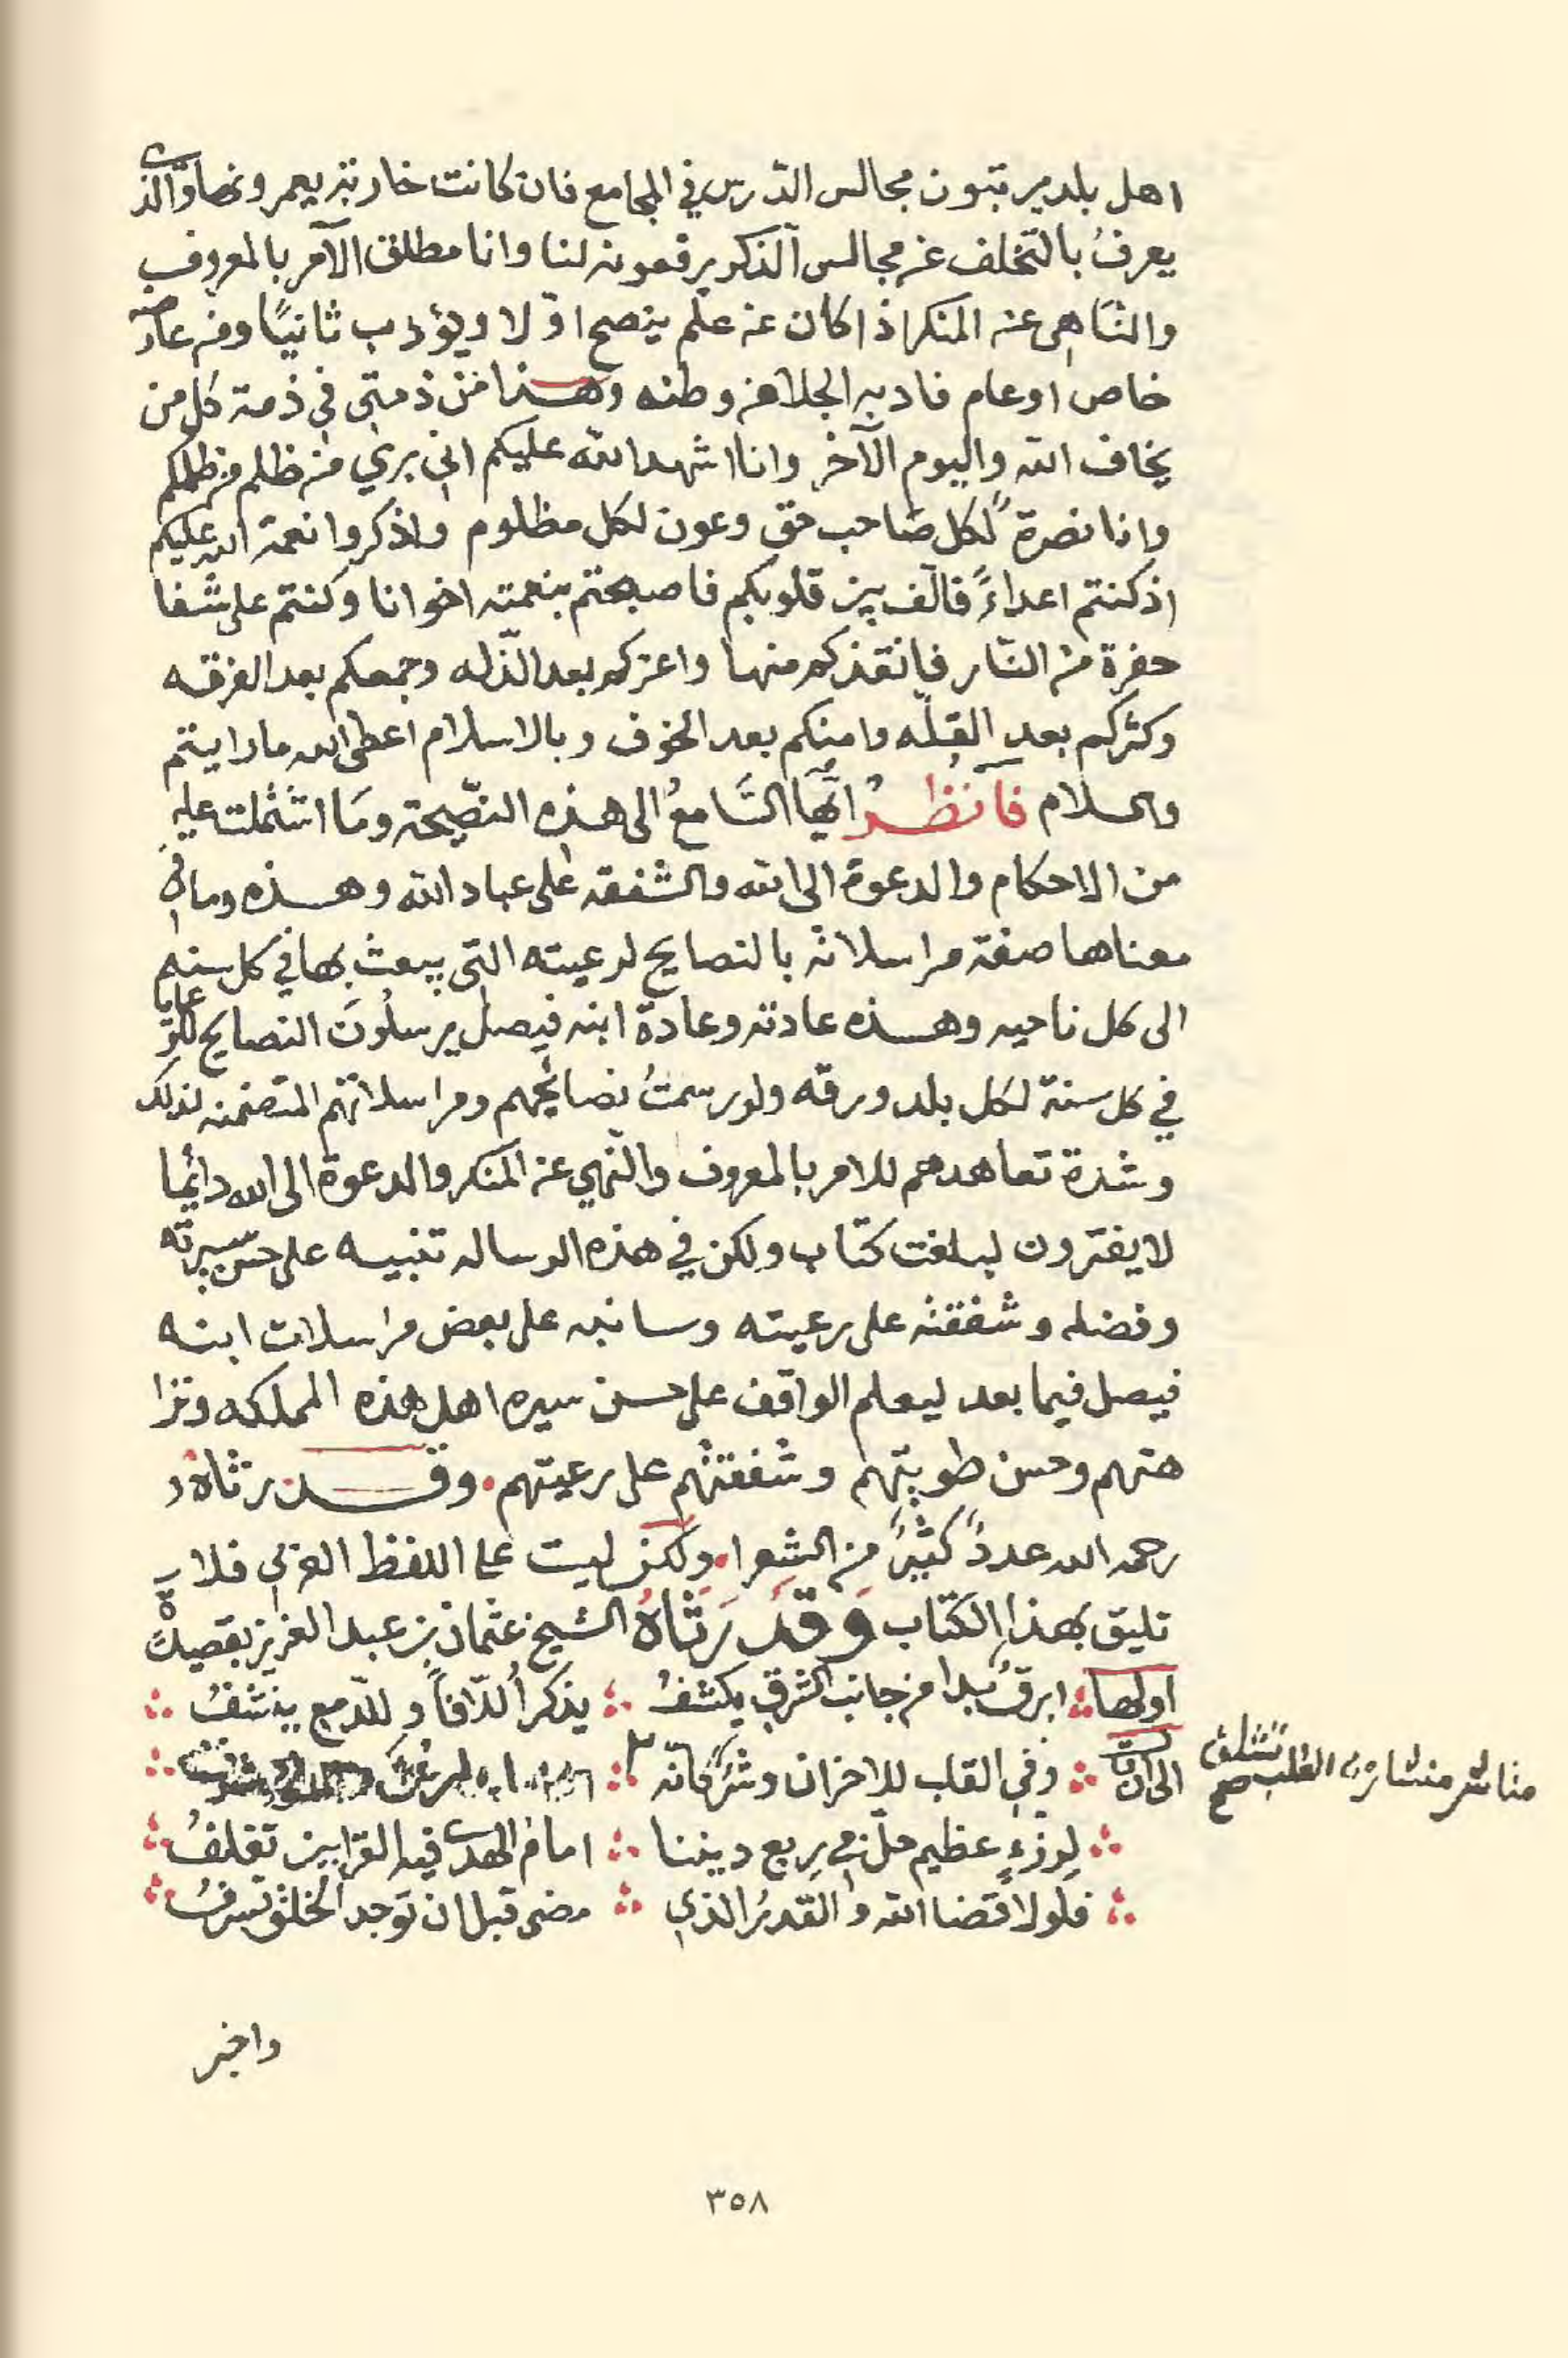 اهل بلد يرتبون مجالس الدّرس في المجامع فان كانت خاربة يعمرونها والذي
يعرفُ بالتّخلف عن مجالس الذكر يرفعونه لنا وانا مطلق الآمر بالمعروف
والنّاهى عن المنكر اذا كان عن علم ينصح اوّلا ويؤدب ثانيًا ومن عارض
خاص او عام فادبه الجلا من وطنه وهذا من ذمتي في ذمة كل من
يخاف الله واليوم الآخر وانا اشهد الله عليكم اني بري من ظلم من ظلمكم
وانا نصرةً لكل صاحب حق وعون لكل مظلوم واذكروا نعمة الله عليكم
اذ كنتم اعداءً فالّف بين قلوبكم فاصبحتم بنعمته اخوانا وكنتم على شفا
حفرة من النّار فانقذكم منها واعزكم بعد الذّله وجمعكم بعد الفرقه
وكثركم بعد القلّه وامنكم بعد الخوف وبالاسلام اعطى الله ما رايتم
والسلام فانظرْ ايّها السَّامعُ الى هذه النصّيحة ومَا اشتملت عليه
من الاحكام والدعوة الى الله والشفقه على عباد الله وهذه وما في
معناها صفة مراسلاته بالنصايح لرعيته التي يبعث بها في كل سنه
الى كل ناحيه وهذه عادته وعادة ابنه فيصل يرسلُونَ النصايح للرعايا
في كل سنة لكل بلد ورقه ولو رسمتُ نصائحهم ومراسلاتهم المتضمنه لذلك
وشدة تعاهدهم للامر بالمعروف والنّهي عن المنكر والدعوة الى الله دائما
لا يفترون لبلغت كتاب ولكن في هذه الرساله تنبيه على حسن سيرته
وفضله وشفقته على رعيته وسانبه على بعض مراسلات ابنه
فيصل فيما بعد ليعلم الواقف على حسن سيره اهل هذه المملكه ونزا
هتهم وحسن طويتهم وشفقتهم على رعيتهم. وقد رثاهُ
رحمه الله عددً كثيرً من الشعرا. ولكن ليست على اللفظ العربي فلا
تليق بهذا الكتاب وَقَد رَثاهُ الشيخ عثمان بن عبد العزيز بقصيدةٍ
اولها ابرقٌ بدا من جانب الشرق يكشفُ يذكر اُلّافاً وللدّمع ينشفُ
وفي القلب للاحزان وشركَاته
مناشر منشار به القلب صح
لِرزءٍ عظيم حلّ في ربع ديننا امام الهدى فيه القرابين تقلفُ
فلولا قضا الله والقدرُ الذي مضى قبل ان توجد الخلق تسرفُ
واخبر
٣٥٨